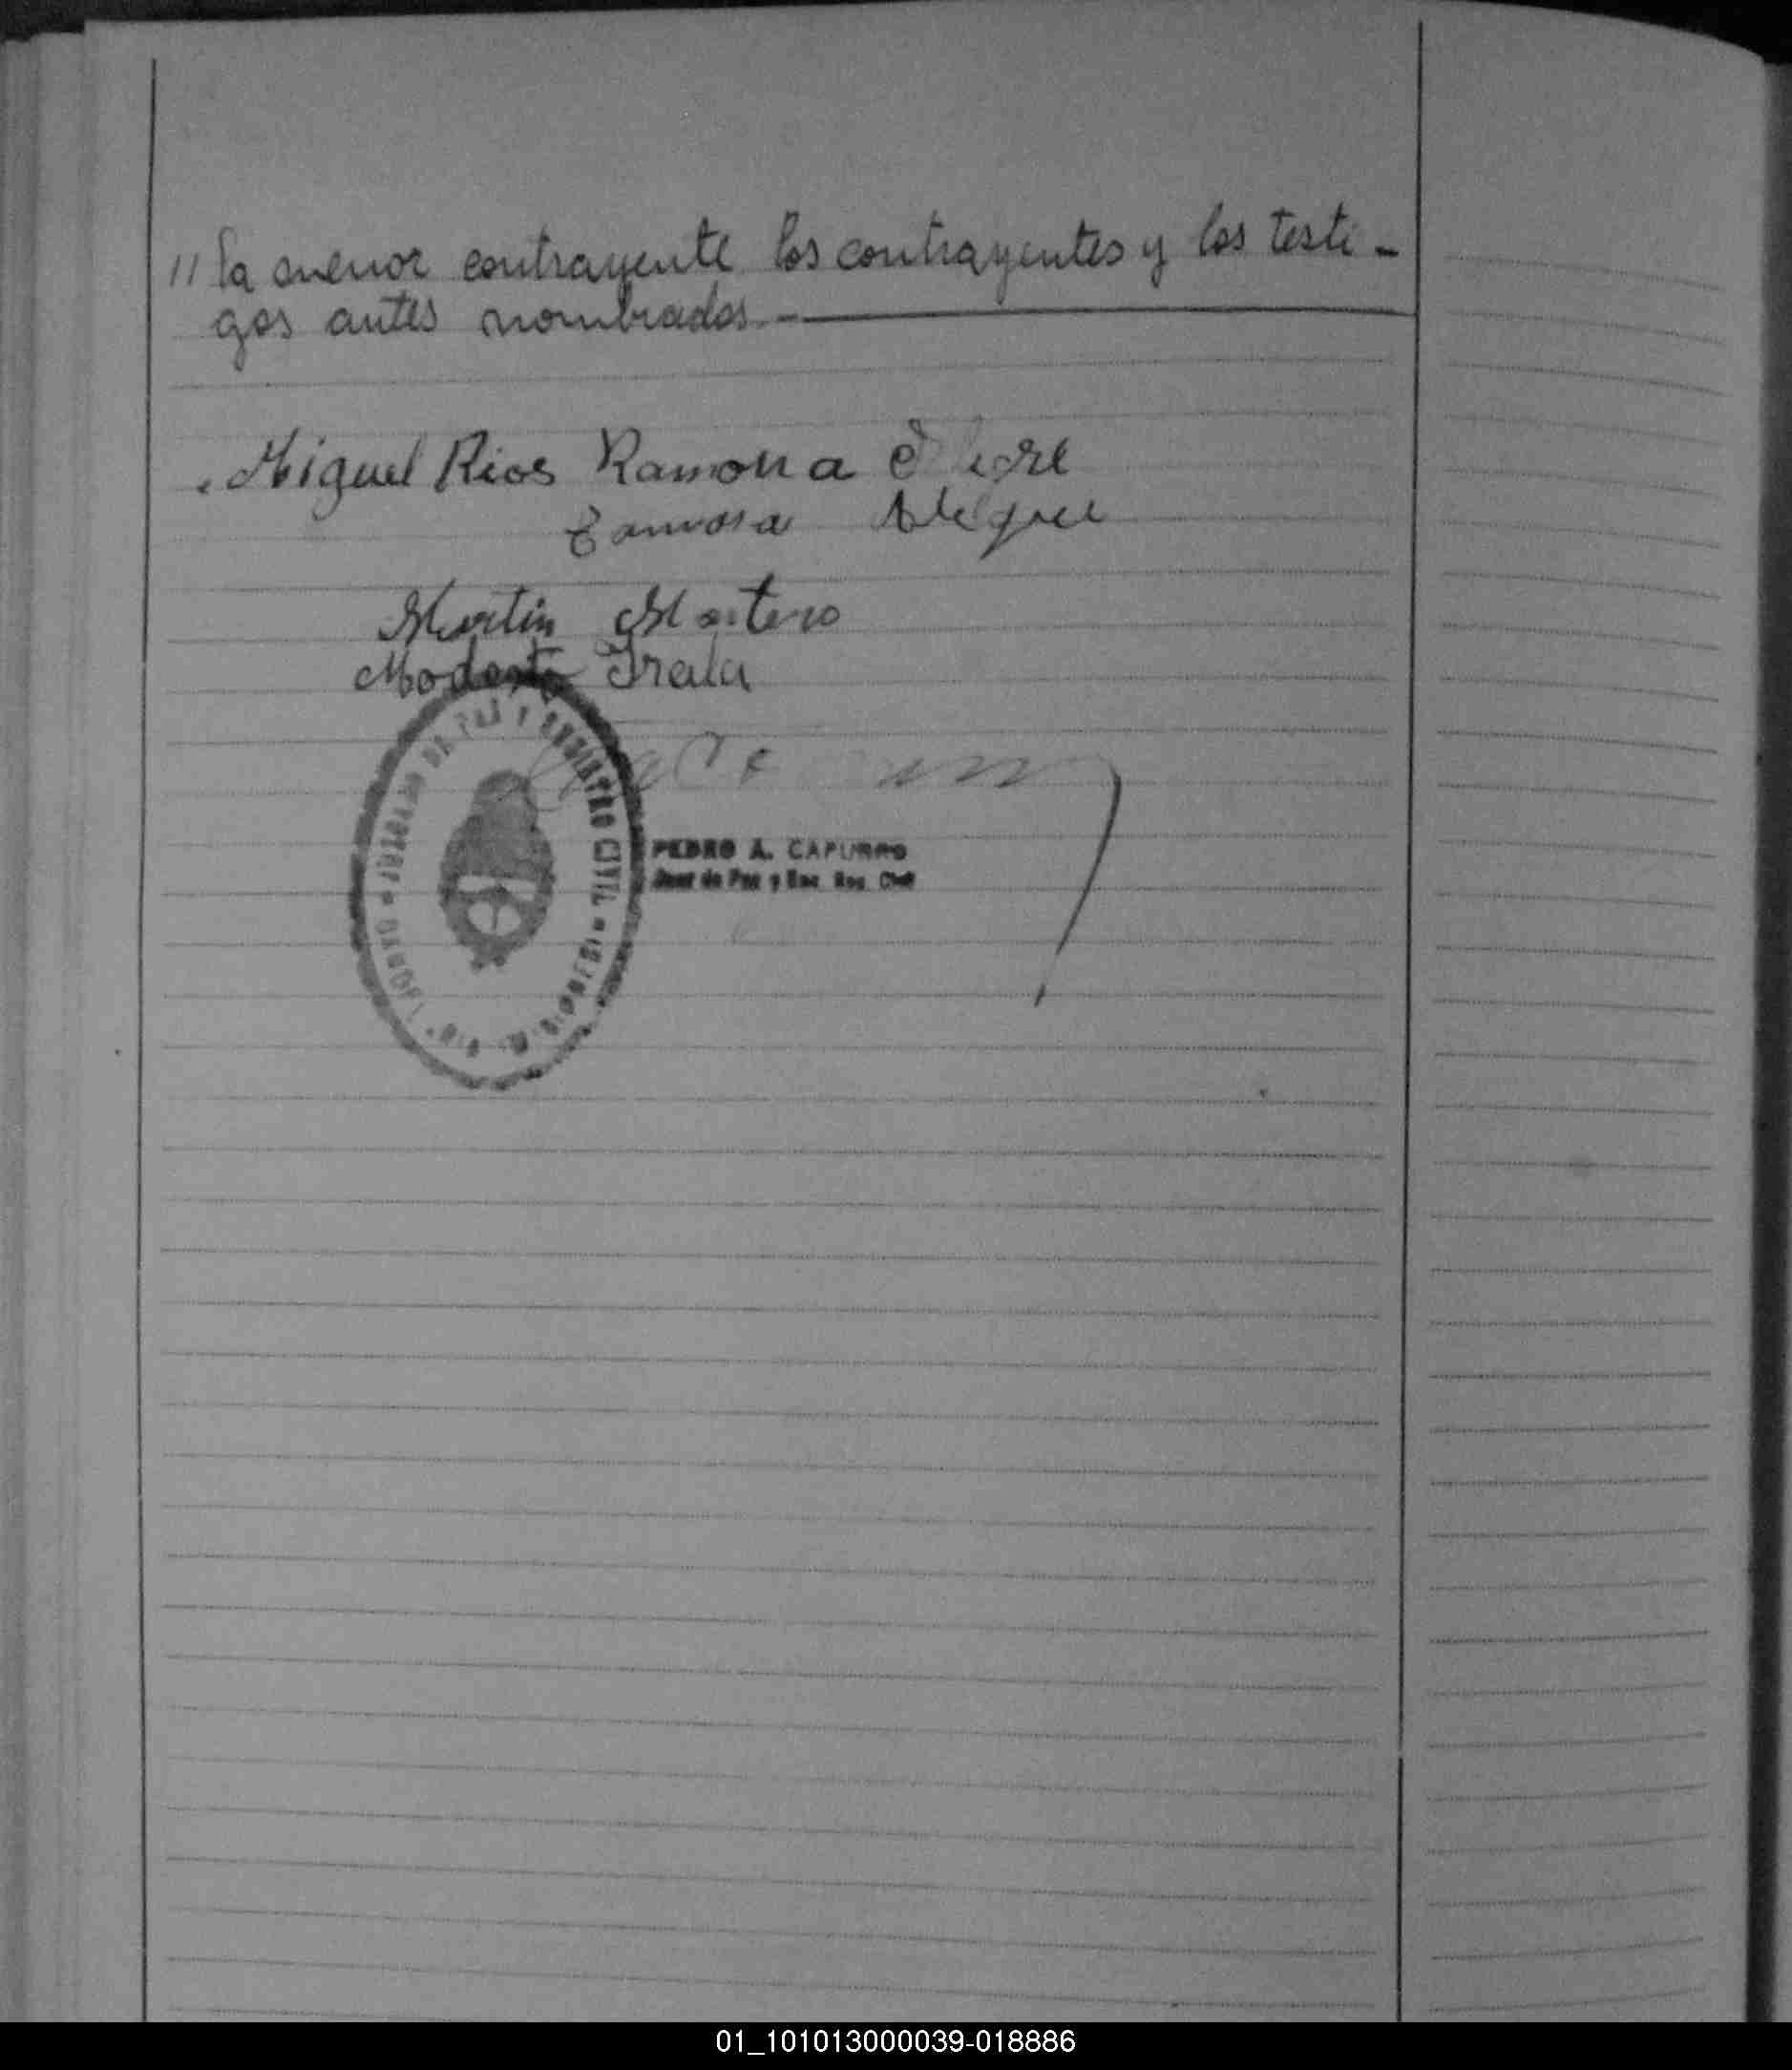 // la menor contrayente los contrayentes y los testi-
gos antes nombrados.-
Miguel Rios Ramona
Martin
Modesto Irala
DE PAZ Y REGISTRO CIVIL
PEDRO A. CAPURRO
Juez de Paz y Enc. Reg. Civil
01_101013000039-018886